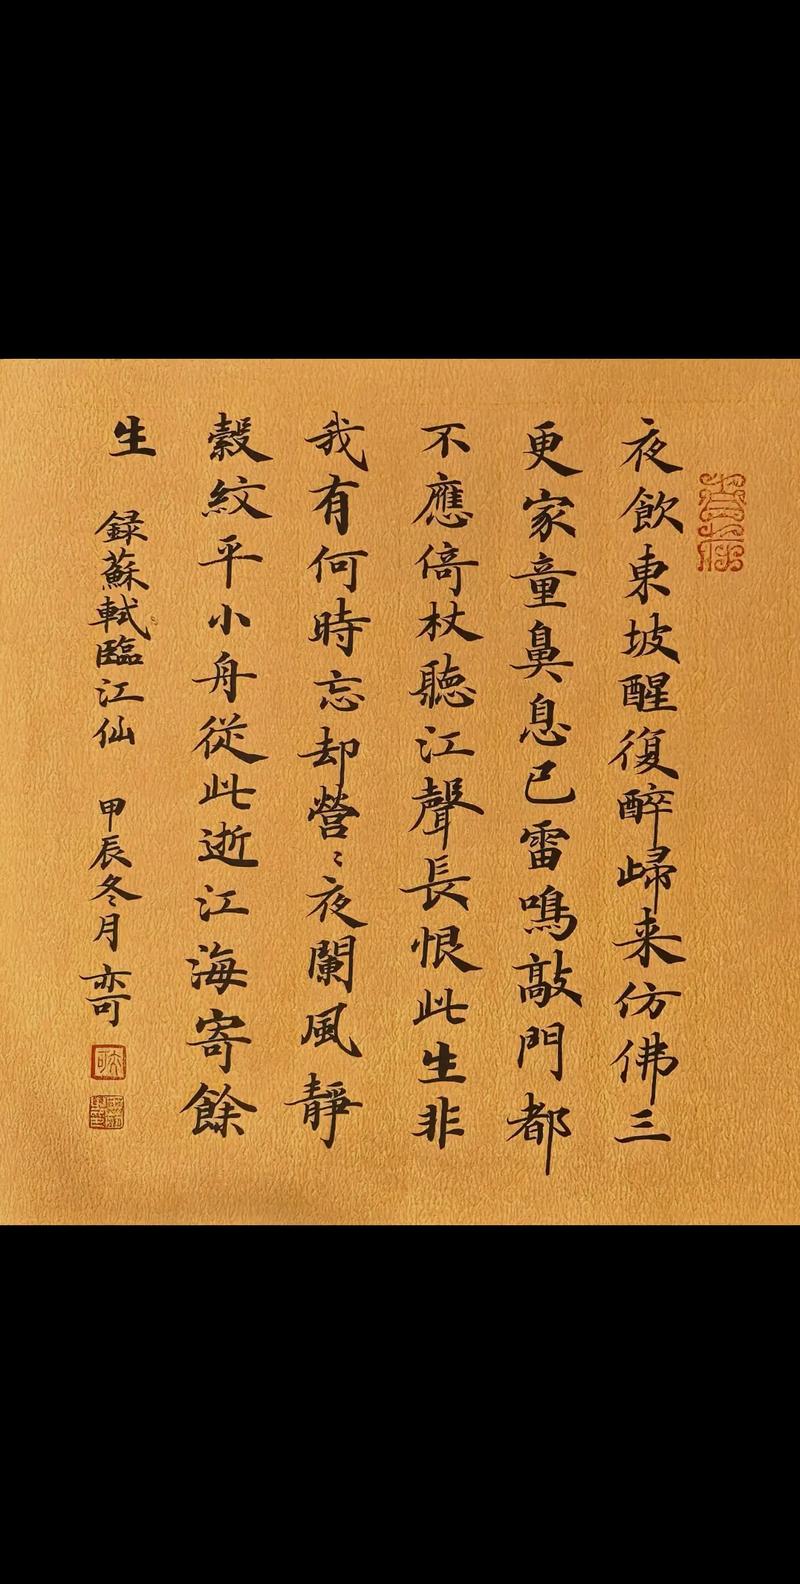 夜飲東坡醒復醉歸来仿佛三
更家童鼻息已雷鳴敲門都
不應倚杖聽江聲長恨此生非
我有何時忘却營〻夜闌風靜
縠紋平小舟從此逝江海寄餘
生
録蘇軾臨江仙 甲辰冬月 亦可